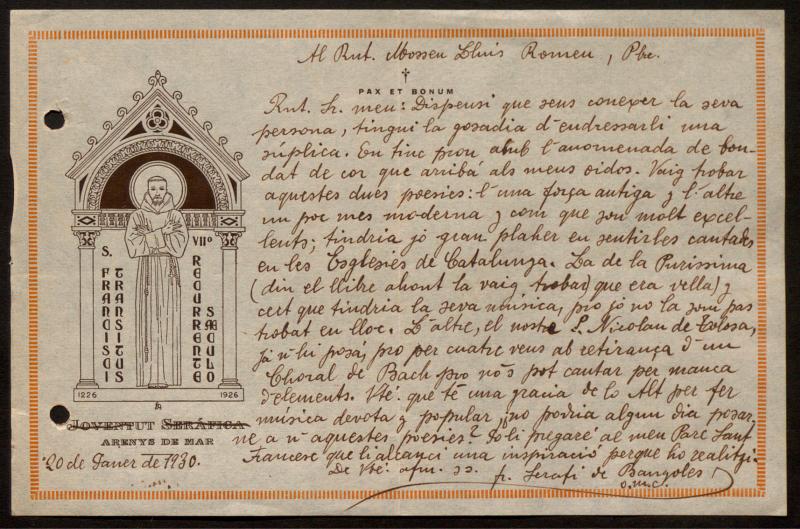 Al Rnt. Mossen Lluis Romeu, Pbe.
PAX ET BONUM
Rnt. Sr. meu: Dispensi que sens conexer la seva
persona, tingui la gosadia d'endressarli una
súplica. En tinc prou amb l'anomenada de bon-
dat de cor que arribá als meus oidos. Vaig trobar
aquestes dues poesies: l'una força antiga y l'altre
un poc mes moderna y com que son molt excel-
lents; tindria jó gran plaher en sentirles cantades
en les Esglesies de Catalunya. La de la Purissima
(diu el llibre ahont la vaig trobar) que era vella) y
cert que tindria la seva música, pro jó no la som pas
trobat en lloc. L'altre, el nostre S. Nicolau de Tolosa,
já n'hi posá, pro per cuatre veus ab retirança d'un
Choral de Bach pro nó's pot cantar per manca
d'elements. Vté. que té una gracia de lo Alt per fer
música devota y popular ¿no podria algun dia posar-
ne a n'aquestes poesies? Jo li pregaré al meu Pare Sant
Francesc que li alcanci una inspiració perque ho realitzi.
De Vté. afm. ss.
fr. Serafí de Banyoles
o.m.c.
S. FRANCISCI
TRANSITUS
VIIº
RECURRENTE
SÆCULO
1226
1926
JOVENTUT SERÁFICA
ARENYS DE MAR
20 de Janer de 1930.